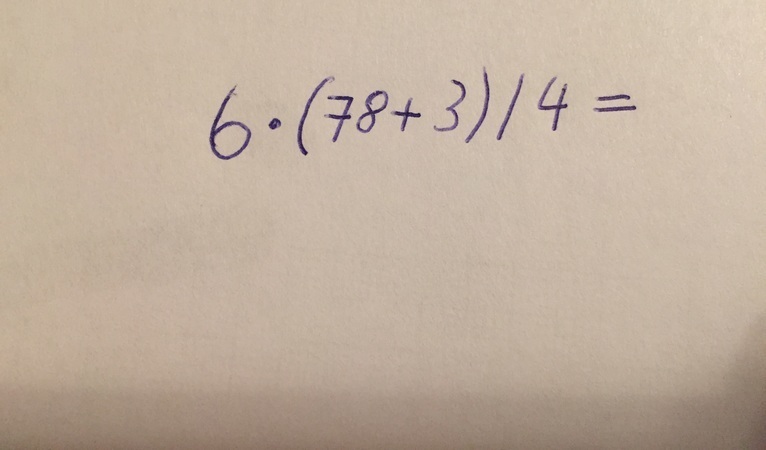 6·(78+3)/4=